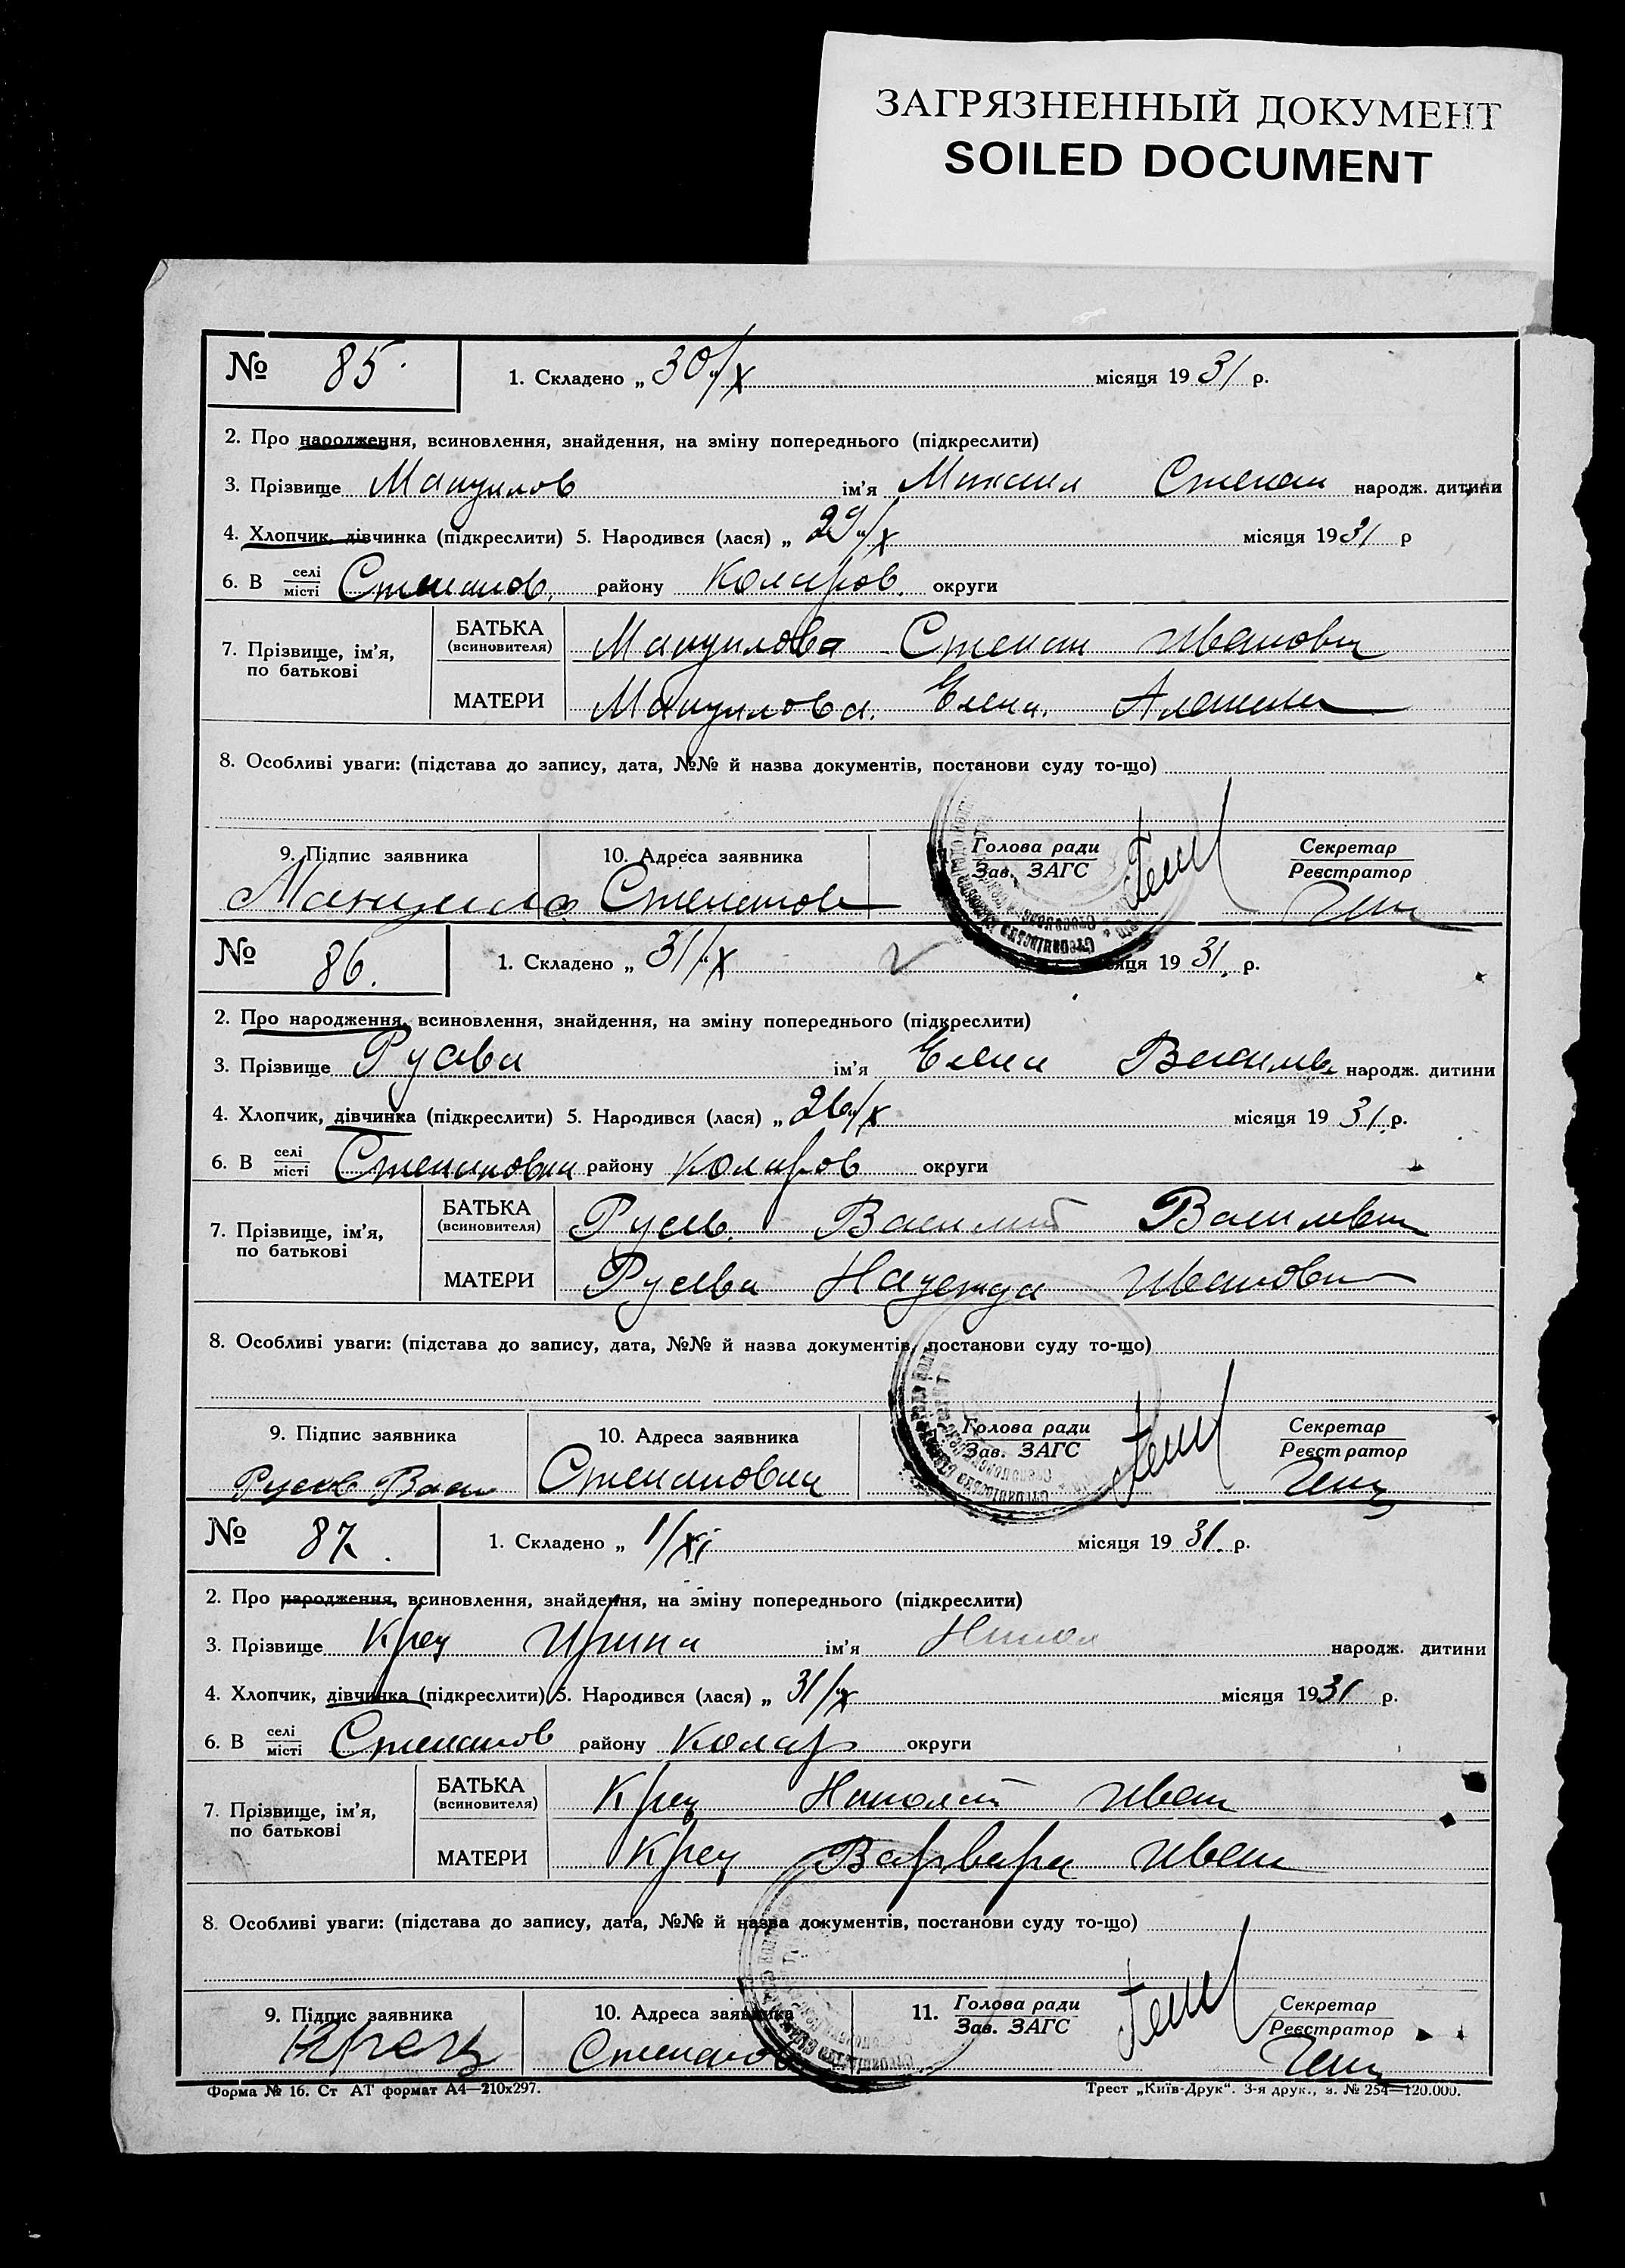 ЗАГРЯЗНЕННЫЙ ДОКУМЕНТ
SOILED DOCUMENT
№ 85. 1. Складено „ 30"/X місяця 1931 р.
2. Про народження, всиновлення, знайдення, на зміну попереднього (підкреслити)
3. Прізвище Мануилов ім'я Михаил Степан народж. дитини
4. Хлопчик, дівчинка (підкреслити) 5. Народився (лася) „ 29"/X місяця 1931 р
6. В селі місті Степанов. району Коларов. округи
7. Прізвище, ім'я, по батькові
БАТЬКА (всиновителя) Мануилова Степан Иванови
МАТЕРИ Мануилова. Елена.
8. Особливі уваги: (підстава до запису, дата, №№ й назва документів, постанови суду то-що)
9. Підпис заявника 10. Адреса заявника Голова ради Зав. ЗАГС Секретар Реєстратор
Мануилов Степанов
№ 86. 1. Складено „ 31/"X місяця 1931. р.
2. Про народження, всиновлення, знайдення, на зміну попереднього (підкреслити)
3. Прізвище Русева ім'я Елена Василь народж. дитини
4. Хлопчик, дівчинка (підкреслити) 5. Народився (лася) „ 26"/X місяця 19 31. р.
6. В селі місті Степановки району Коларов округи
7. Прізвище, ім'я, по батькові
БАТЬКА (всиновителя) Русев. Василий Василевич
МАТЕРИ Русева Надежда Ивановн
8. Особливі уваги: (підстава до запису, дата, №№ й назва документів, постанови суду то-що)
9. Підпис заявника 10. Адреса заявника Голова ради Зав. ЗАГС Секретар Реєстратор
Русев Вас Степановки
№ 87. 1. Складено „ 1/XI місяця 19 31. р.
2. Про народження, всиновлення, знайдення, на зміну попереднього (підкреслити)
3. Прізвище Крец Ирина ім'я Никол народж. дитини
4. Хлопчик, дівчинка (підкреслити) 5. Народився (лася) „ 31/"X місяця 1931 р.
6. В селі місті Степанов району Колар округи
7. Прізвище, ім'я, по батькові
БАТЬКА (всиновителя) Крец Николай Иван
МАТЕРИ Крец Варвара Иван
8. Особливі уваги: (підстава до запису, дата, №№ й назва документів, постанови суду то-що)
9. Підпис заявника 10. Адреса заявника 11. Голова ради Зав. ЗАГС Секретар Реєстратор
Крец Степанов
Форма № 16. Ст АТ формат А4—210х297. Трест „Київ-Друк“. 3-я друк., з. № 254—120.000.